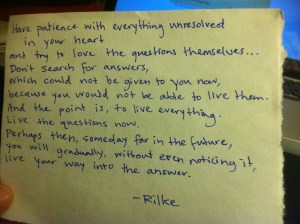 Have patience with everything unresolved
in your heart
and try to love the questions themselves...
Don't search for answers,
which could not be given to you now,
because you would not be able to live them.
And the point is, to live everything.
Live the questions now.
Perhaps then, someday far in the future,
you will gradually, without even noticing it,
live your way into the answer.
-Rilke